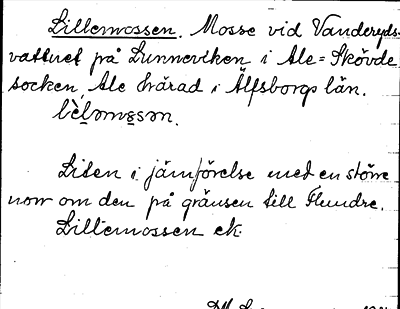 Lillemossen. Mosse vid Vanderyds-
vattnet på Lunneviken i Ale=Skövde
socken, Ale härad i Älfsborgs län.
Liten i jämförelse med en större
norr om den på gränsen till Flundre.
Lillemossen ek.